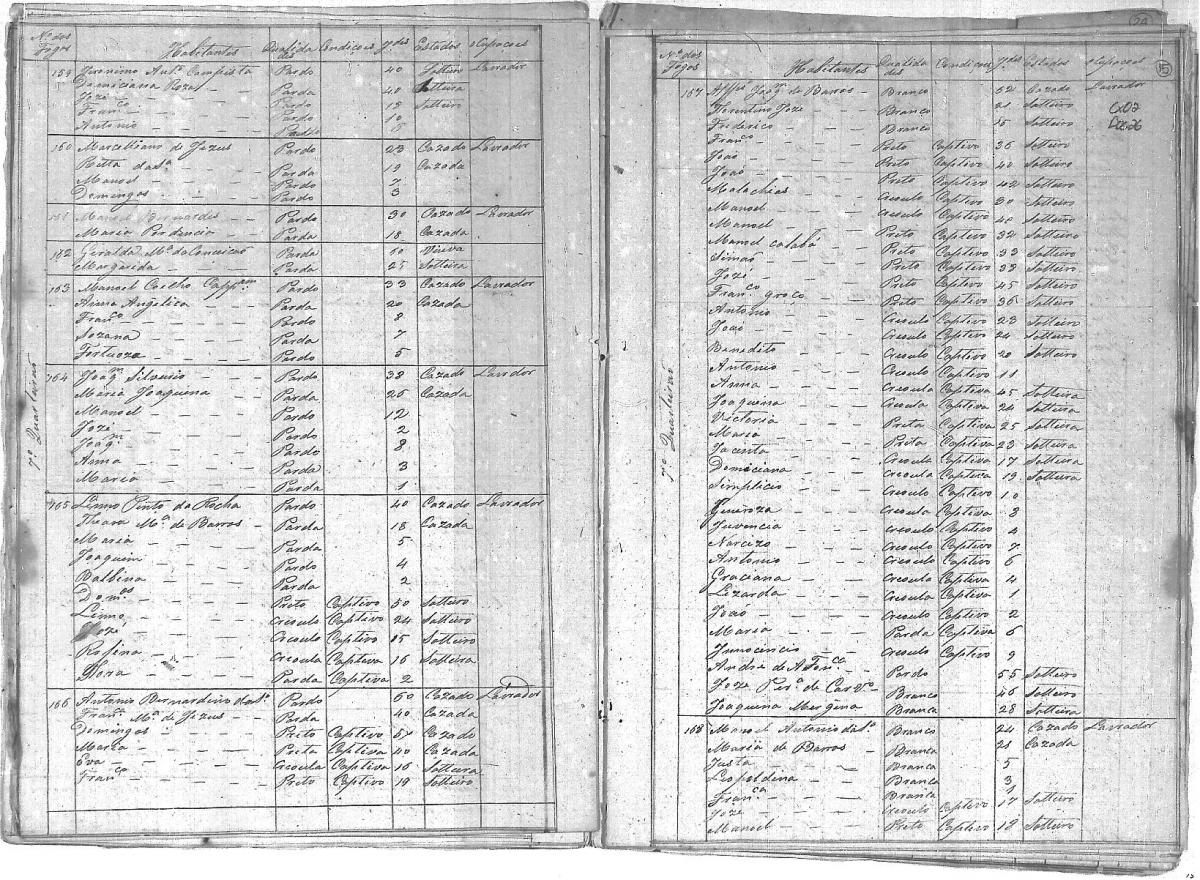 Nº dos Fogos Habitantes Qualidades Condiçoes Ydes Estados Ocupacoes
159 Jeronimo Antº Campista Pardo 40 Solteiro Lavrador
Domiciana Roza Parda 40 Solteira
Jozé Pardo 18 Solteiro
Franco Pardo 10
Antonio Pardo
160 Marcelliano de Jezus Pardo 23 Cazado Lavrador
Ritta da Sa Parda 19 Cazada
Manoel Pardo 7
Domingos Pardo 3
161 Manoel Bernardes Pardo 30 Cazado Lavrador
Maria Perdencia Parda 18 Cazada
162 Geralda Mª da Conceicaõ Parda 60 Viuva
Margarida Parda 25 Solteira
163 Manoel Coelho Pardo 33 Cazado Lavrador
Anna Angelica Parda 20 Cazada
Franco Pardo 8
Sozana Parda 7
Fortuoza Pardo 5
7º Quarteiraõ
164 Joaqm Silverio Pardo 38 Cazado Lavrdor
Maria Joaquina Parda 26 Cazada
Manoel Pardo 12
Jozé Pardo 2
Joaqm Pardo 8
Anna Parda 3
Maria Parda 1
165 Linno Pinto da Rocha Pardo 40 Cazado Lavrador
Thereza Mª de Barros Parda 18 Cazada
Maria Parda 5
Joaquim Pardo 4
Balbina Parda 2
Domos Preto Captivo 50 Solteiro
Linno Creoulo Captivo 24 Solteiro
Jozé Creoulo Captivo 15 Solteiro
Rofina Creoula Captiva 16 Solteira
Parda Captiva 2
166 Antonio Bernardino da Sa Pardo 60 Cazado Lavrador
Franca Mª de Jezus Parda 40 Cazada
Domingos Preto Captivo 54 Cazado
Maria Preta Captiva 40 Cazada
Eva Creoula Captiva 16 Solteira
Franco Preto Captivo 19 Solteiro
24
15
Nº dos Fogos Habitantes Qualidades Condicoes Ydes Estados Ocupacoes
167 Alfes Joaqm de Barros Branco 52 Cazado Lavrador
Florentino Jozé Branco 21 Solteiro
Frederico Branco 15 Solteiro
Franco Preto Captivo 36 Solteiro
Joaõ Preto Captivo 40 Solteiro
Joaõ Preto Captivo 42 Solteiro
Malachias Creoulo Captivo 30 Solteiro
Manoel Creoulo Captivo 40 Solteiro
Manoel Preto Captivo 32 Solteiro
Manoel calabá Preto Captivo 33 Solteiro
Simaõ Preto Captivo 39 Solteiro
Jozé Preto Captivo 45 Solteiro
Franco groco Preto Captivo 36 Solteiro
Antonio Creoulo Captivo 23 Solteiro
Joaõ Creoulo Captivo 24 Solteiro
Benedito Creoulo Captivo 20 Solteiro
Antonio Creoulo Captivo 11
Anna Creoula Captiva 45 Solteira
Joaquina Creoula Captiva 24 Solteira
Victoria Preta Captiva 25 Solteira
Maria Preta Captiva 23 Solteira
Jacinta Creoula Captiva 17 Solteira
Domiciana Creoula Captiva 13 Solteira
Simplicio Creoulo Captivo 10
Generoza Creoula Captiva 8
Juvencia Creoula Captiva 4
Narcizo Creoulo Captivo 7
Antonio Creoulo Captivo 6
Graciana Creoula Captiva 4
Lizarda Creoula Captiva 1
Joaõ Creoulo Captivo 2
Maria Parda Captiva 6
Innocencio Creoulo Captivo 9
Andre de Afonca Pardo 55 Solteiro
Joze Pera de Carvo Branco 46 Solteiro
Joaquina Mergina Branca 28 Solteira
7º Quarteiraõ
168 Manoel Antonio da Sa Branco 24 Cazado Lavrador
Maria de Barros Branca 21 Cazada
Justa Branca 5
Leopoldina Branca 3
Franca Branca 1
Joze Creoulo Captivo 17 Solteiro
Manoel Preto Captivo 18 Solteiro